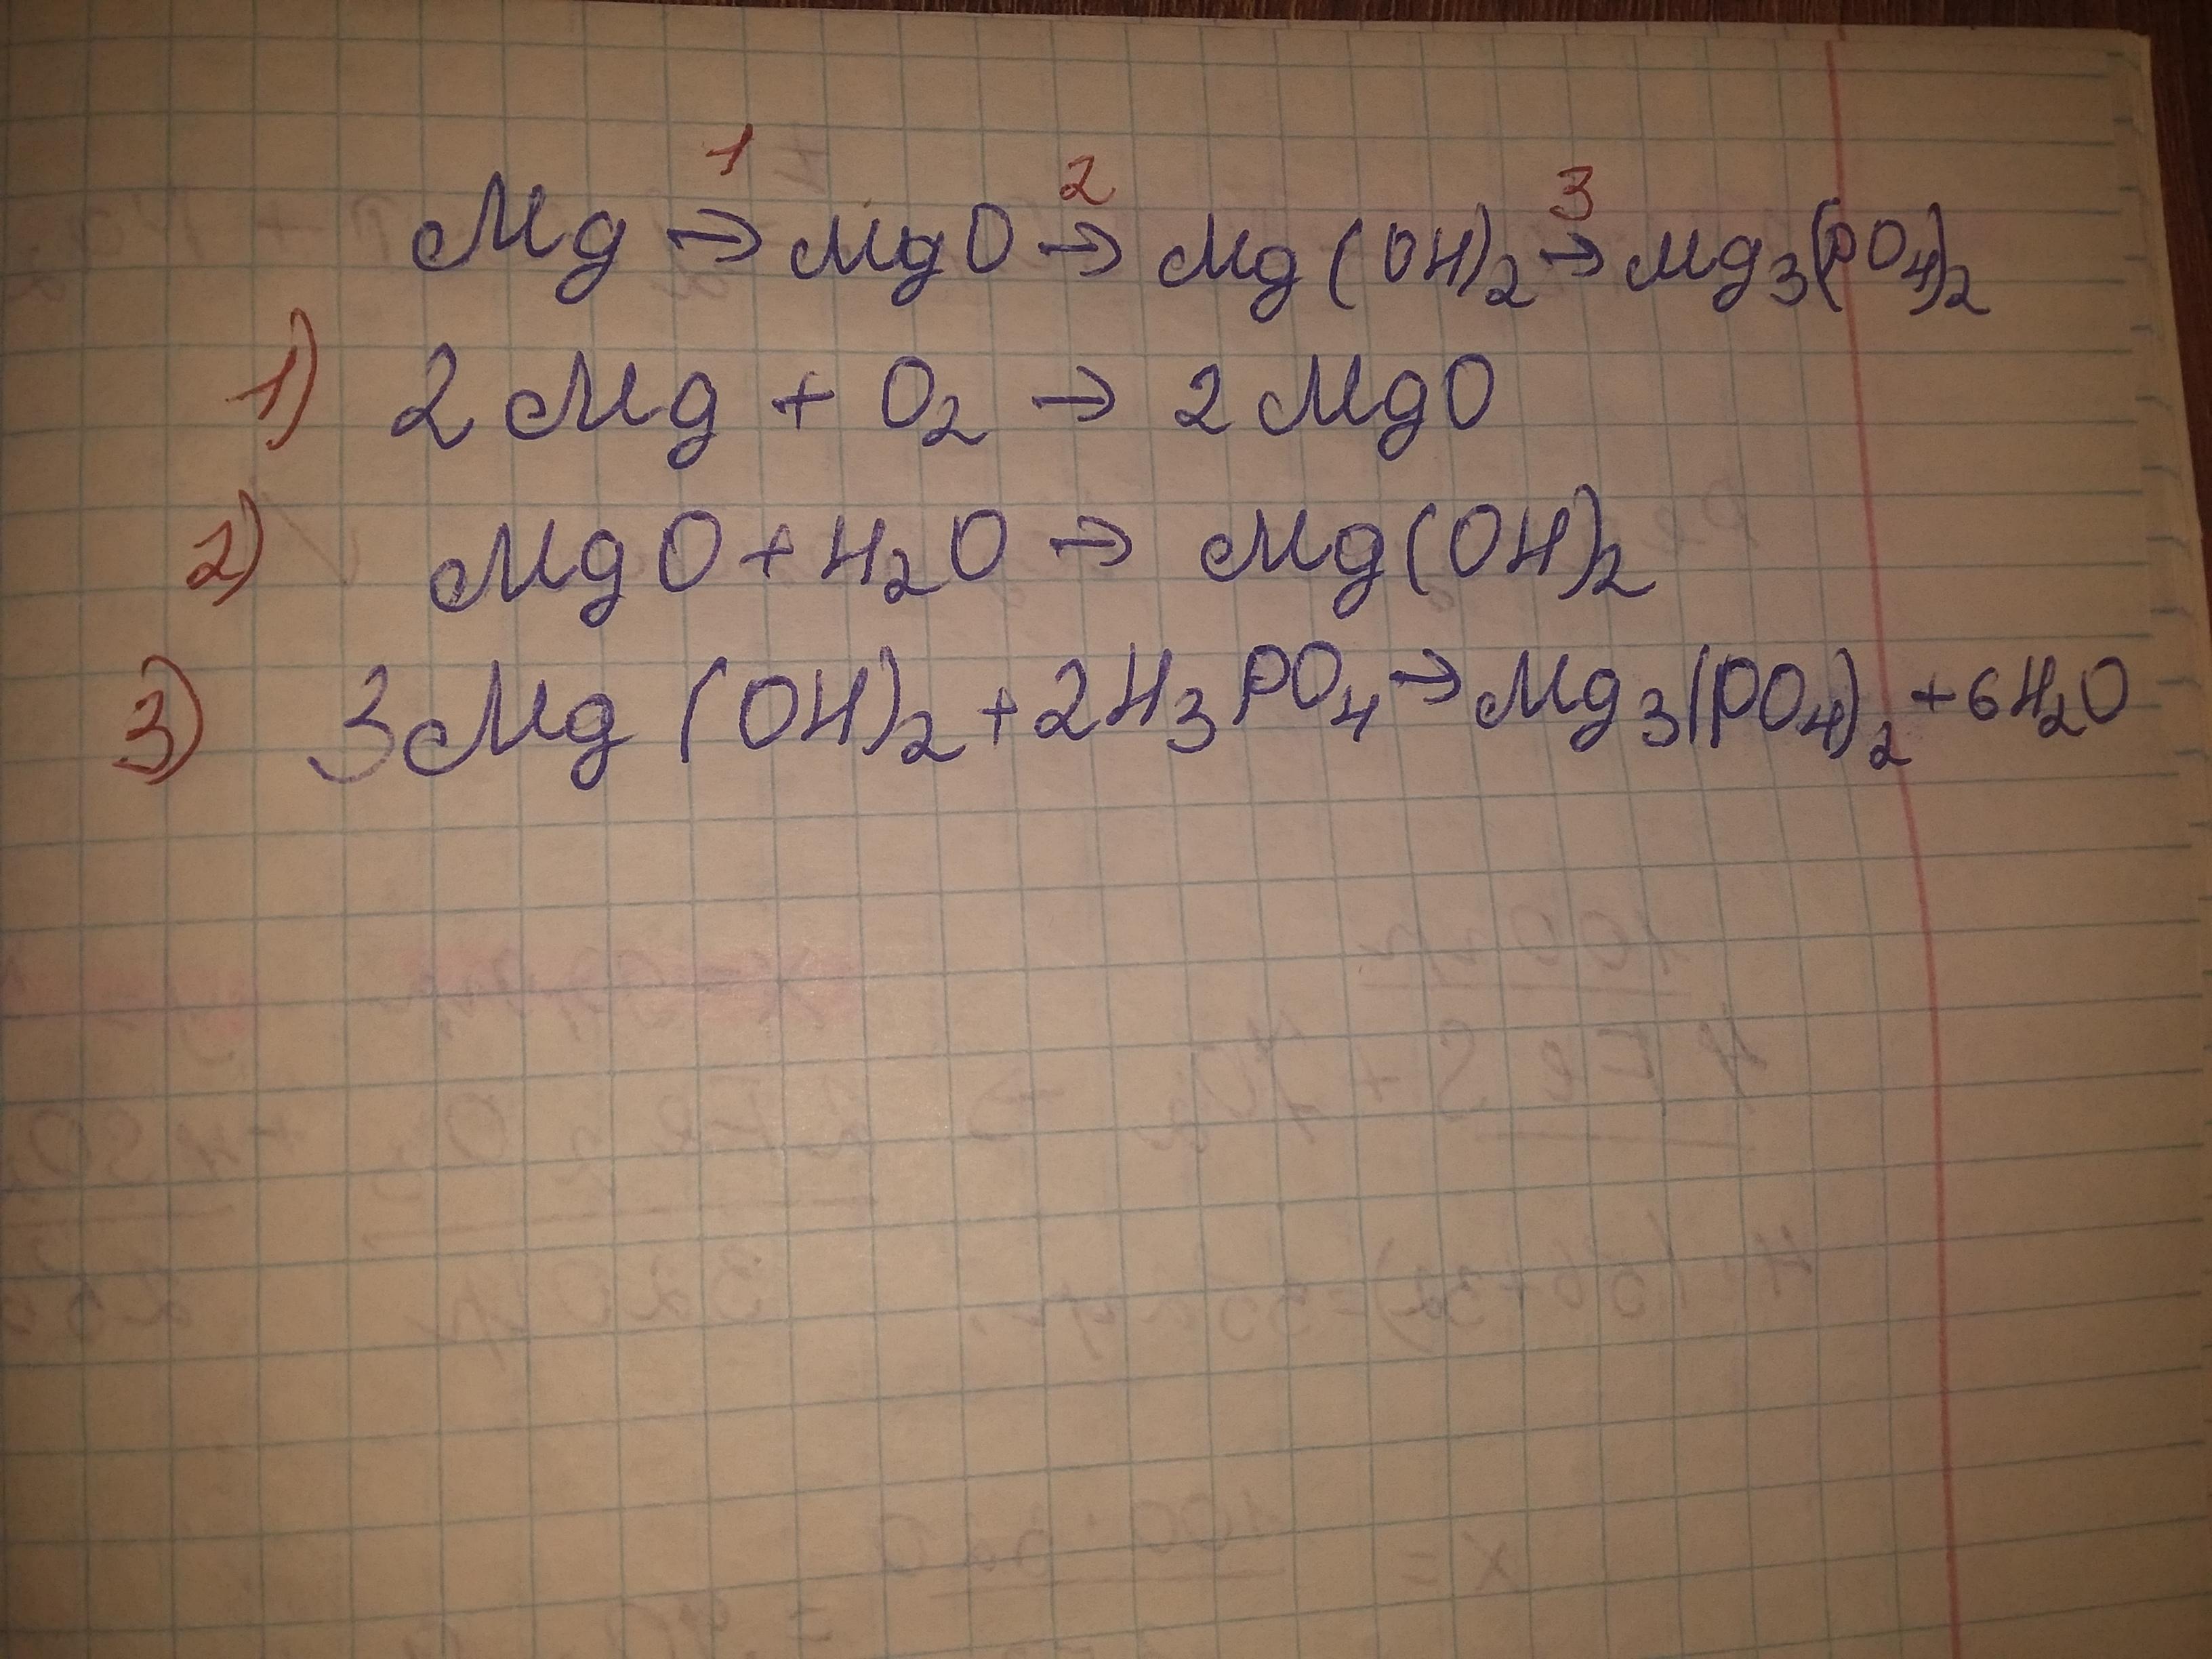 Mg →¹ MgO →² Mg(OH)₂ →³ Mg₃(PO₄)₂
1) 2Mg + O₂ → 2MgO
2) MgO + H₂O → Mg(OH)₂
3) 3Mg(OH)₂ + 2H₃PO₄ → Mg₃(PO₄)₂ + 6H₂O